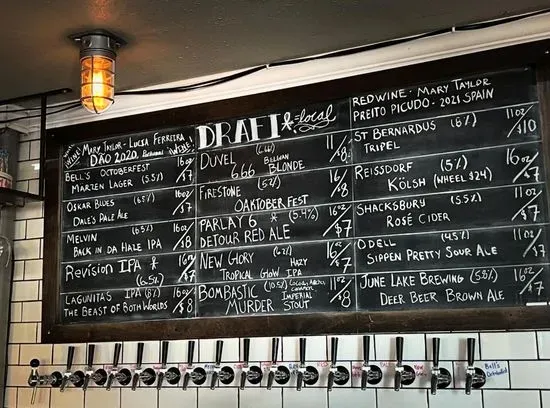 MARY TAYLOR - LUCIA FERREIRA
DÃO 2020,
BELL'S OCTOBERFEST 16oz
MARZEN LAGER (5.5%) /$7
OSKAR BLUES (6.5%) 16oz
DALE'S PALE ALE /$7
MELVIN 16oz
BACK IN DA HALE IPA /$8
REVISION IPA * 16oz
(6.5%) /$7
LAGUNITAS IPA 16oz
THE BEAST OF BOTH WORLDS /$8
DRAFT *=local
DUVEL 11oz
666 BELGIAN BLONDE /$8
FIRESTONE (5%) 16oz
OAKTOBERFEST /$7
PARLAY 6 * (5.4%) 16oz
DETOUR RED ALE /$7
NEW GLORY HAZY 16oz
TROPICAL GLOW IPA /$7
BOMBASTIC (10.5%) 11oz
MURDER IMPERIAL STOUT /$8
RED WINE - MARY TAYLOR
PREITO PICUDO - 2021 SPAIN
ST BERNARDUS (8%) 11oz
TRIPEL /$10
REISSDORF (5%) 16oz
KÖLSH (WHEEL $24) /$7
SHACKSBURY (5.5%) 11oz
ROSÉ CIDER /$7
ODELL (4.5%) 11oz
SIPPEN PRETTY SOUR ALE /$7
JUNE LAKE BREWING (5.8%) 16oz
DEER BEER BROWN ALE /$7
Bell's
Octoberfest